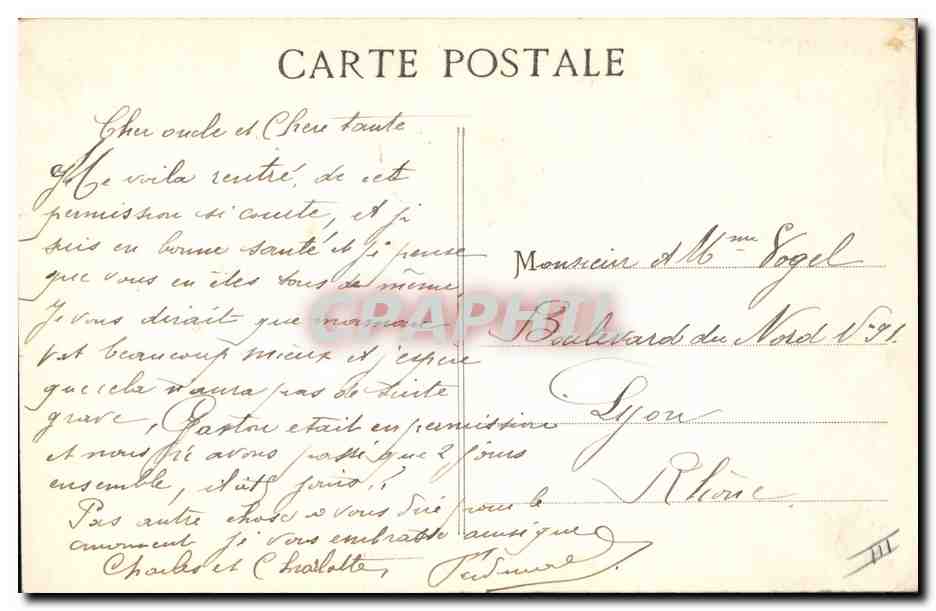 CARTE POSTALE
Cher oncle et Chere tante
Me voila rentré, de cet
permission si courte, et je
suis en bonne santé et je pense
que vous en êtes tous de même,
Je vous dirait que maman
vat beaucoup mieux et j'espere
que cela n'aura pas de suite
grave, Gaston etait en permission
et nous ne avons passé que 2 jours
ensemble,
Pas autre chose a vous dire pour le
moment je vous embrasse ainsi que
Charles et Charlotte,
Monsieur et Mme Vogel
Boulevard du Nord No 91.
Lyon
Rhône
III
CRAPHIL